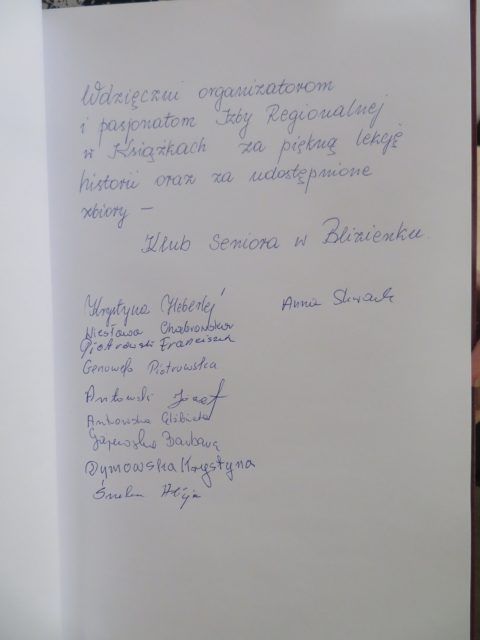 Wdzięczni organizatorom
i pasjonatom Izby Regionalnej
w Książkach za piękną lekcję
historii oraz za udostępnione
zbiory –
Klub Seniora w Blizienku.
Krystyna
Anna
Wiesława
Piotrowski Franciszek
Genowefa Piotrowska
Ankowski Józef
Ankowska Elżbieta
Gajewska Barbara
Dymowska Krystyna